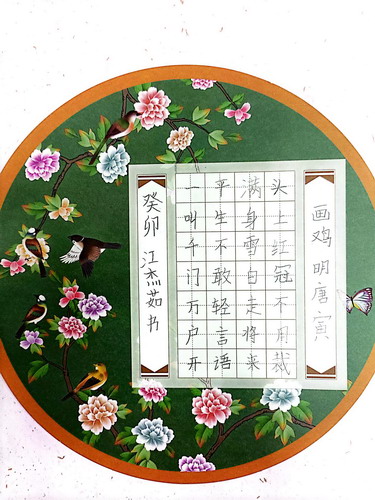 画鸡 明唐寅
头上红冠不用裁
满身雪白走将来
平生不敢轻言语
一叫千门万户开
癸卯 江杰茹书